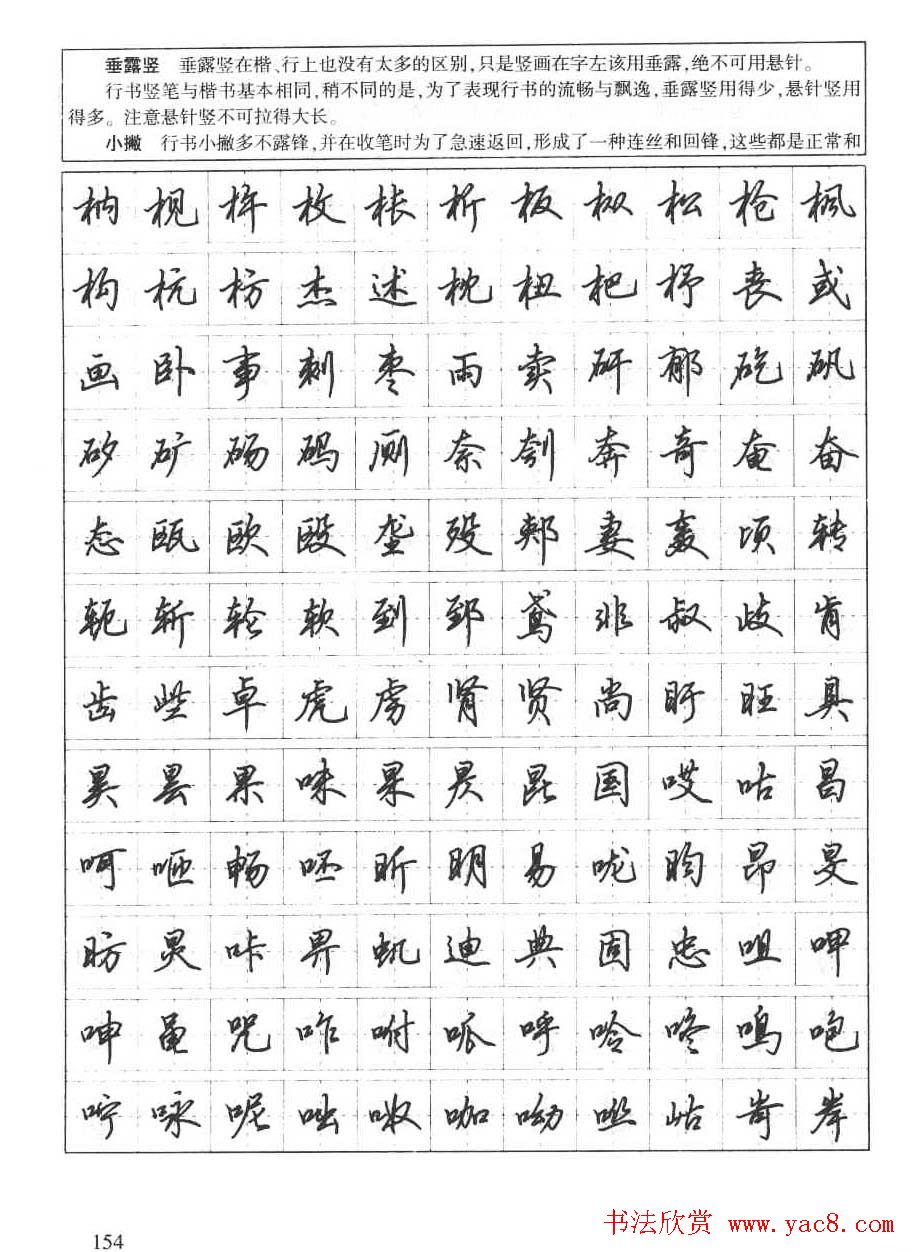 垂露竖 垂露竖在楷、行上也没有太多的区别,只是竖画在字左该用垂露,绝不可用悬针。
行书竖笔与楷书基本相同,稍不同的是,为了表现行书的流畅与飘逸,垂露竖用得少,悬针竖用
得多。注意悬针竖不可拉得大长。
小撇 行书小撇多不露锋,并在收笔时为了急速返回,形成了一种连丝和回锋,这些都是正常和
枘 枧 杵 枚 枨 析 板 枞 松 枪 枫
构 杭 枋 杰 述 枕 杻 杷 杼 丧 或
画 卧 事 刺 枣 雨 卖 矸 郁 矻 矾
矽 矿 砀 码 厕 奈 刳 奔 奇 奄 奋
态 瓯 欧 殴 垄 殁 郏 妻 轰 顷 转
轭 斩 轮 软 到 郅 鸢 非 叔 歧 肯
齿 些 卓 虎 虏 肾 贤 尚 盱 旺 具
昊 昙 果 味 杲 炅 昆 国 哎 咕 昌
呵 咂 畅 呸 昕 明 易 咙 昀 昂 旻
昉 炅 咔 畀 虮 迪 典 固 忠 咀 呷
呻 黾 咒 咋 咐 呱 呼 呤 咚 鸣 咆
咛 咏 呢 咄 呶 咖 呦 咝 岵 岢 岸
154
书法欣赏 www.yac8.com